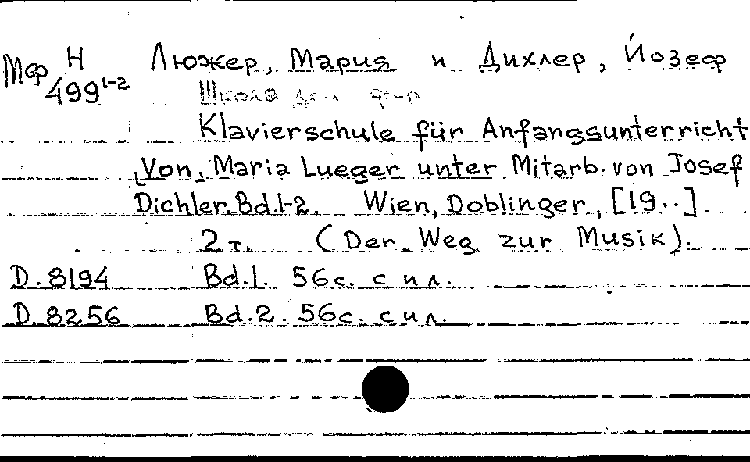 Мф Н 499 1-2
Люжер, Мария и Дихлер, Йозеф
Школа для ф-п
Klavierschule für Anfangsunterricht
Von Maria Lueger unter Mitarb. von Josef
Dichler. Bd.1-2. Wien, Doblinger, [19..].
2 т. (Der Weg zur Musik).
D. 8194 Bd.1. 56с. с ил.
D. 8256 Bd.2. 56с. с ил.